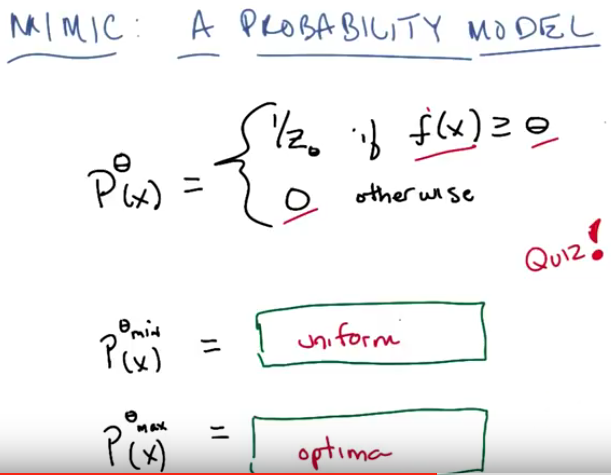 MIMIC: A PROBABILITY MODEL
1/Zθ if f(x) ≥ θ
P^θ(x) =
0 otherwise
Quiz!
P^θmin(x) = uniform
P^θmax(x) = optima